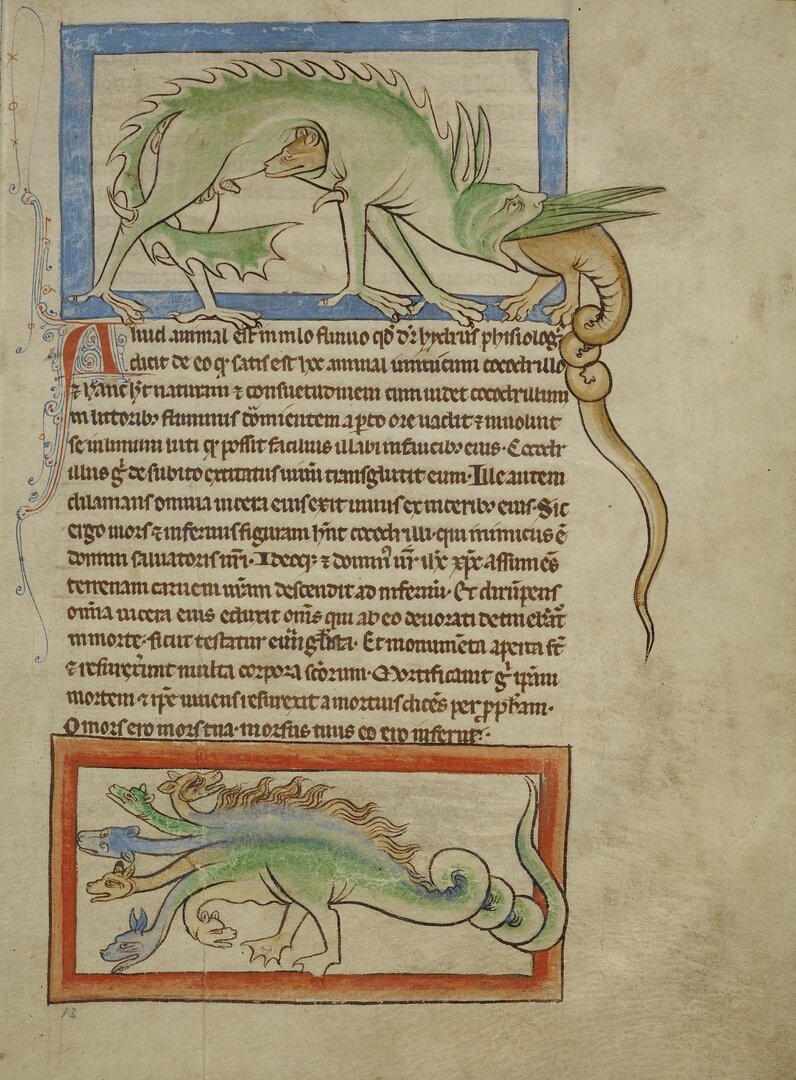 Aliud animal est in nilo fluuio qď dr̄ hydrus phisiolog᷒
dicit de eo qr satis est hoc animal inimicum cocodrillo
⁊ hanc ht̄ naturam ⁊ consuetudinem cum uidet cocodrillum
in littorib; fluminis dōmientem apto ore uadit ⁊ inuoluit
se in limum luti qr possit facilius illabi in faucib; eius. Cocodr
illus g̃ de subito excitatus uiuū transglutit eum. Ille autem
dilanians omnia uiscera eius exit uiuus ex uiscerib; eius. Sic
ergo mors ⁊ infernus figuram hn̄t cocodrilli. qui inimicus ē
domini saluatoris nr̄i. Ideoq; ⁊ domin᷒ nr̄ ihc xp̄c assumēs
terrenam carnem nr̄am descendit ad infernū. Et dirūpens
om̄ia uiscera eius eduxit om̄s qui ab eo deuorati detinebāt᷑
in morte. sicut testatur euūgl̄ista. Et monumēta aperta st̄
⁊ resurrexerunt multa corpora sc̄orum. Mortificauit g̃ ip̄am
mortem ⁊ ip̄e uiuens resurrexit a mortuis dicēs per pp̄ham.
O mors ero mors tua. morsus tuus eo ero inferne.
13